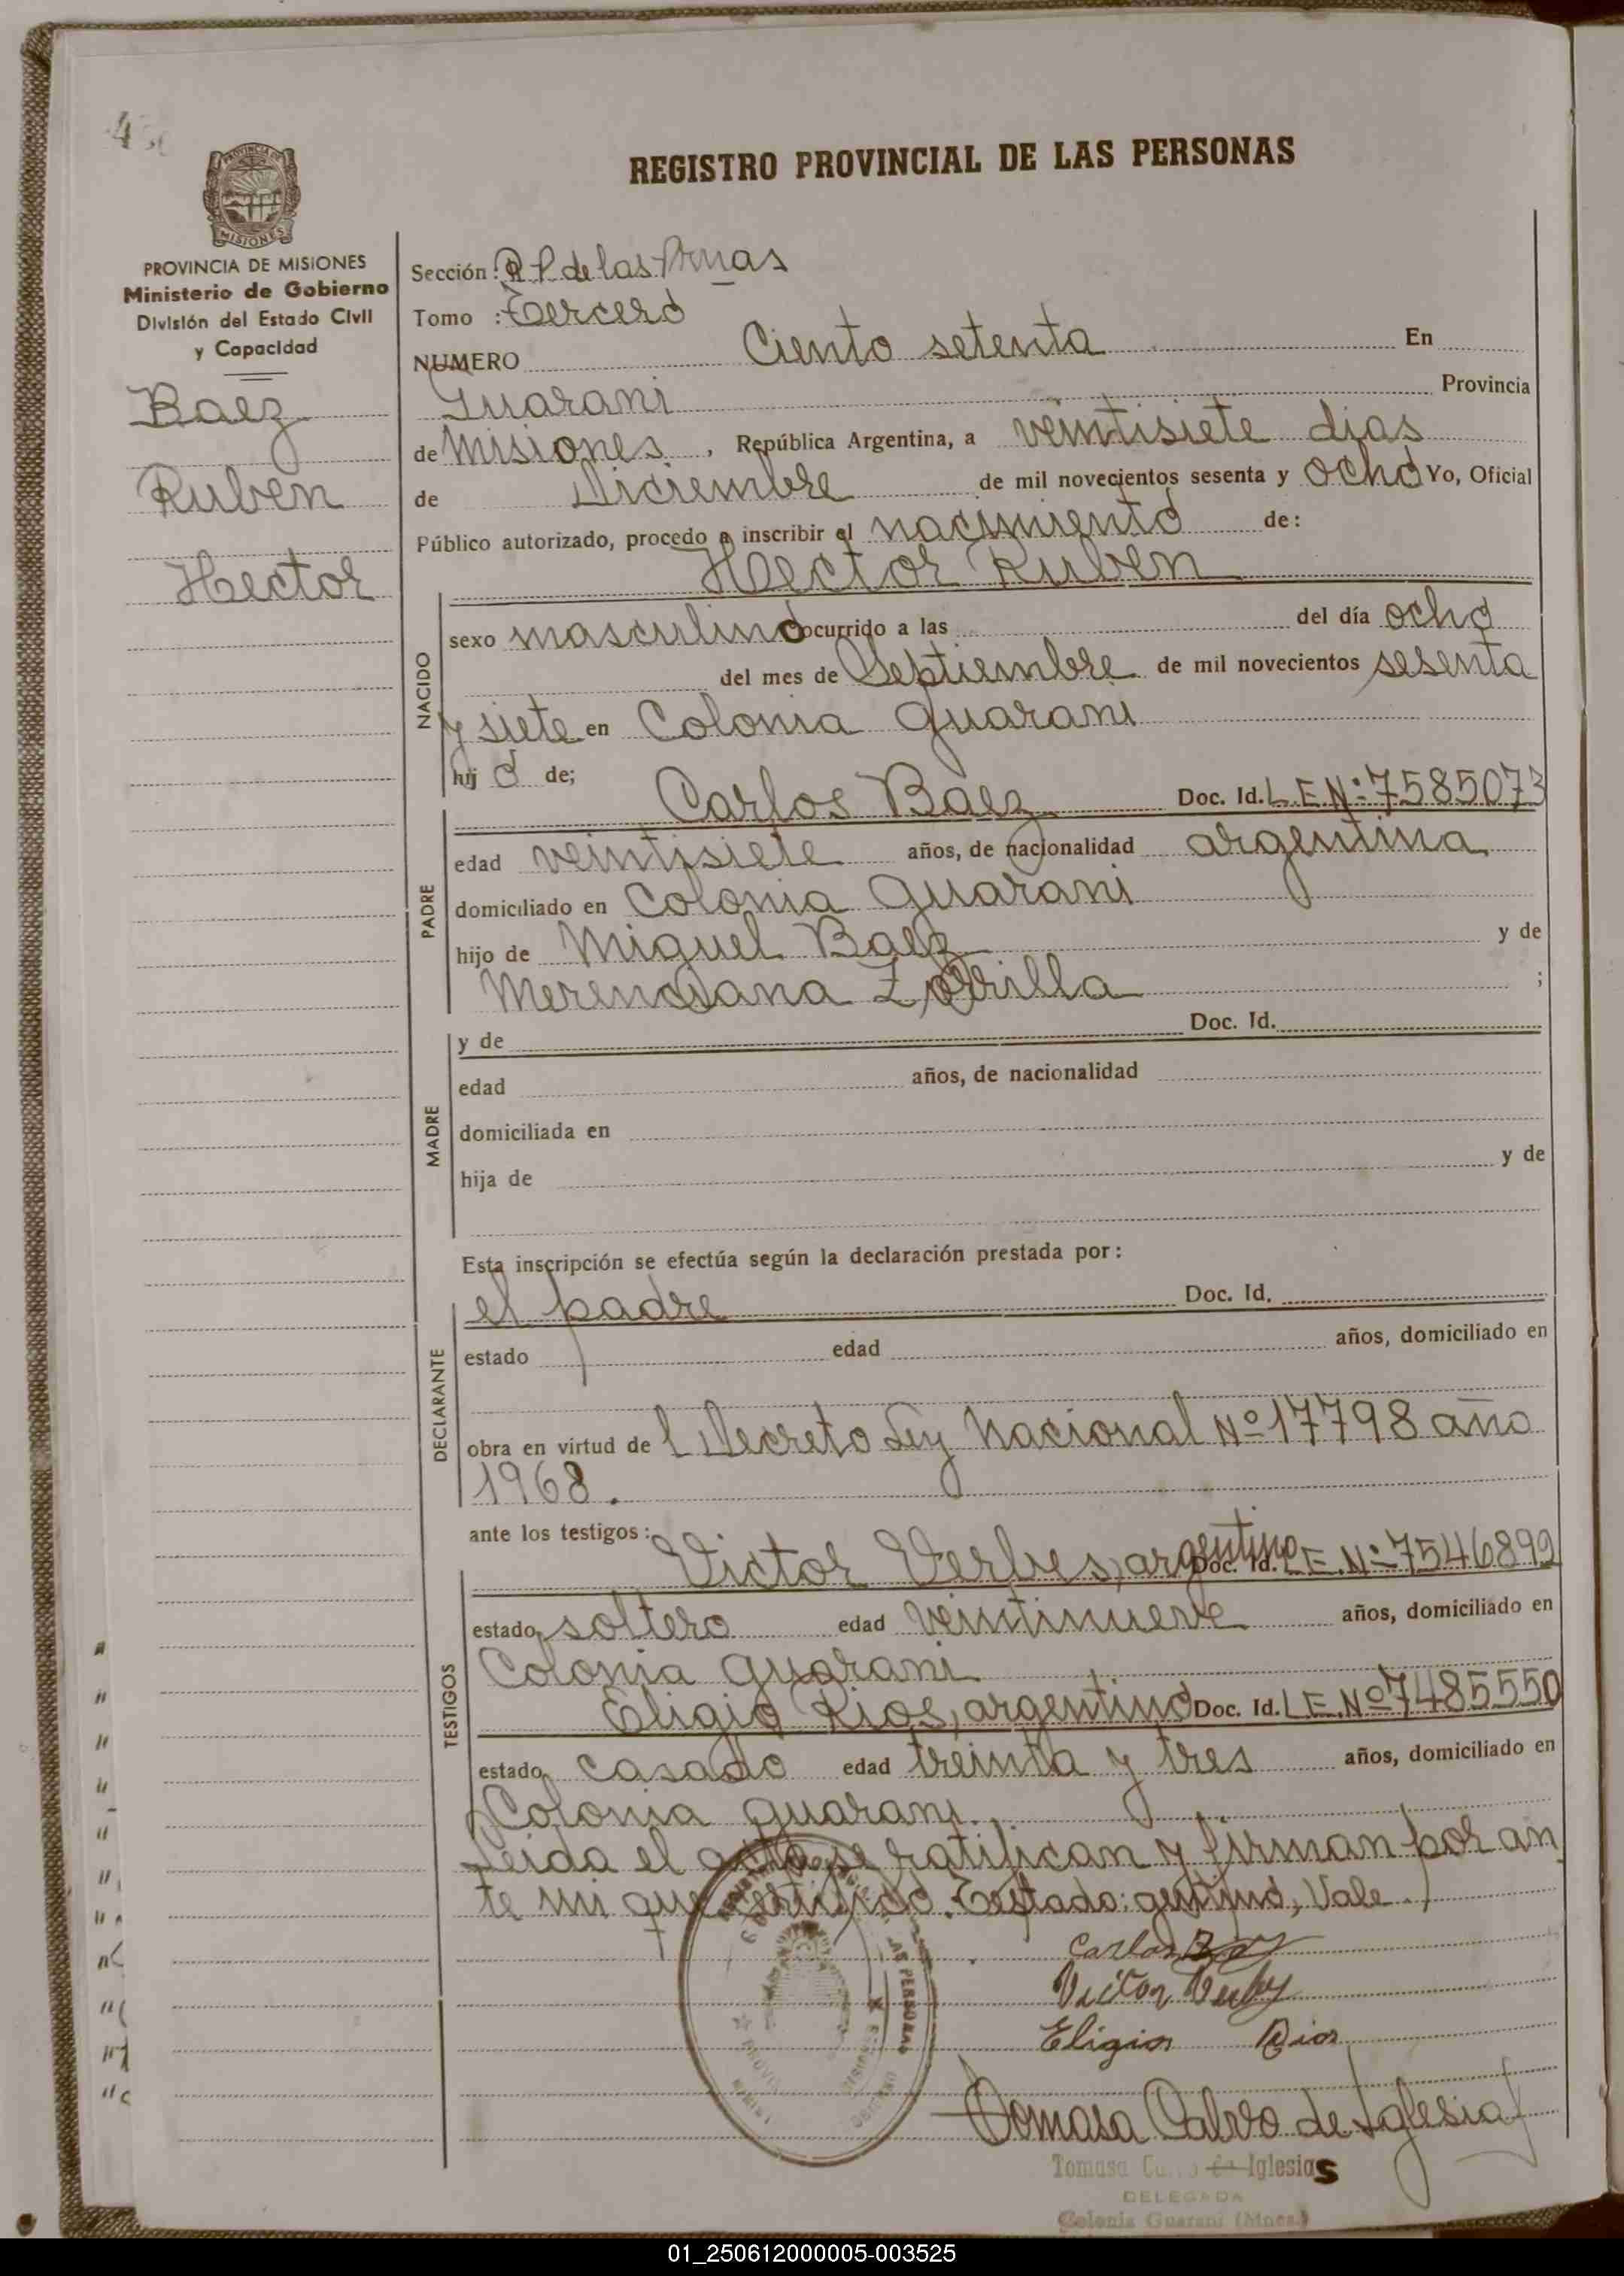 REGISTRO PROVINCIAL DE LAS PERSONAS
PROVINCIA DE MISIONES
Ministerio de Gobierno
División del Estado Civil
y Capacidad
Baez
Ruben
Hector
Sección: R P de las Prnas
Tomo : Tercero
NUMERO Ciento setenta En
Guarani Provincia
de Misiones, República Argentina, a veintisiete dias
de Diciembre de mil novecientos sesenta y ocho Yo, Oficial
Público autorizado, procedo a inscribir el nacimiento de:
Hector Ruben
NACIDO
sexo masculino ocurrido a las del día ocho
del mes de Septiembre de mil novecientos sesenta
y siete en Colonia Guarani
hijo de;
Carlos Baez Doc. Id. L.E.Nº 7585073
PADRE
edad veintisiete años, de nacionalidad argentina
domiciliado en Colonia Guarani
hijo de Miguel Baez y de
Merenciana Zorrilla ;
MADRE
y de Doc. Id.
edad años, de nacionalidad
domiciliada en
hija de y de
Esta inscripción se efectúa según la declaración prestada por:
DECLARANTE
el padre Doc. Id.
estado edad años, domiciliado en
obra en virtud del Decreto Ley Nacional Nº 17798 año
1968.
ante los testigos:
TESTIGOS
Victor Verbes, argentino Doc. Id. L.E.Nº 7546899
estado soltero edad veintinueve años, domiciliado en
Colonia Guarani
Eligio Rios, argentino Doc. Id. L.E.Nº 7485550
estado casado edad treinta y tres años, domiciliado en
Colonia Guarani.
Leida el acta se ratifican y firman por an
te mi que certifico. Testado: gentino, Vale.
Carlos Baez
Victor
Eligio Rios
Tomasa Calvo de Iglesias
Tomasa de Iglesias
DELEGADA
Colonia Guarani (Mnes.)
01_250612000005-003525